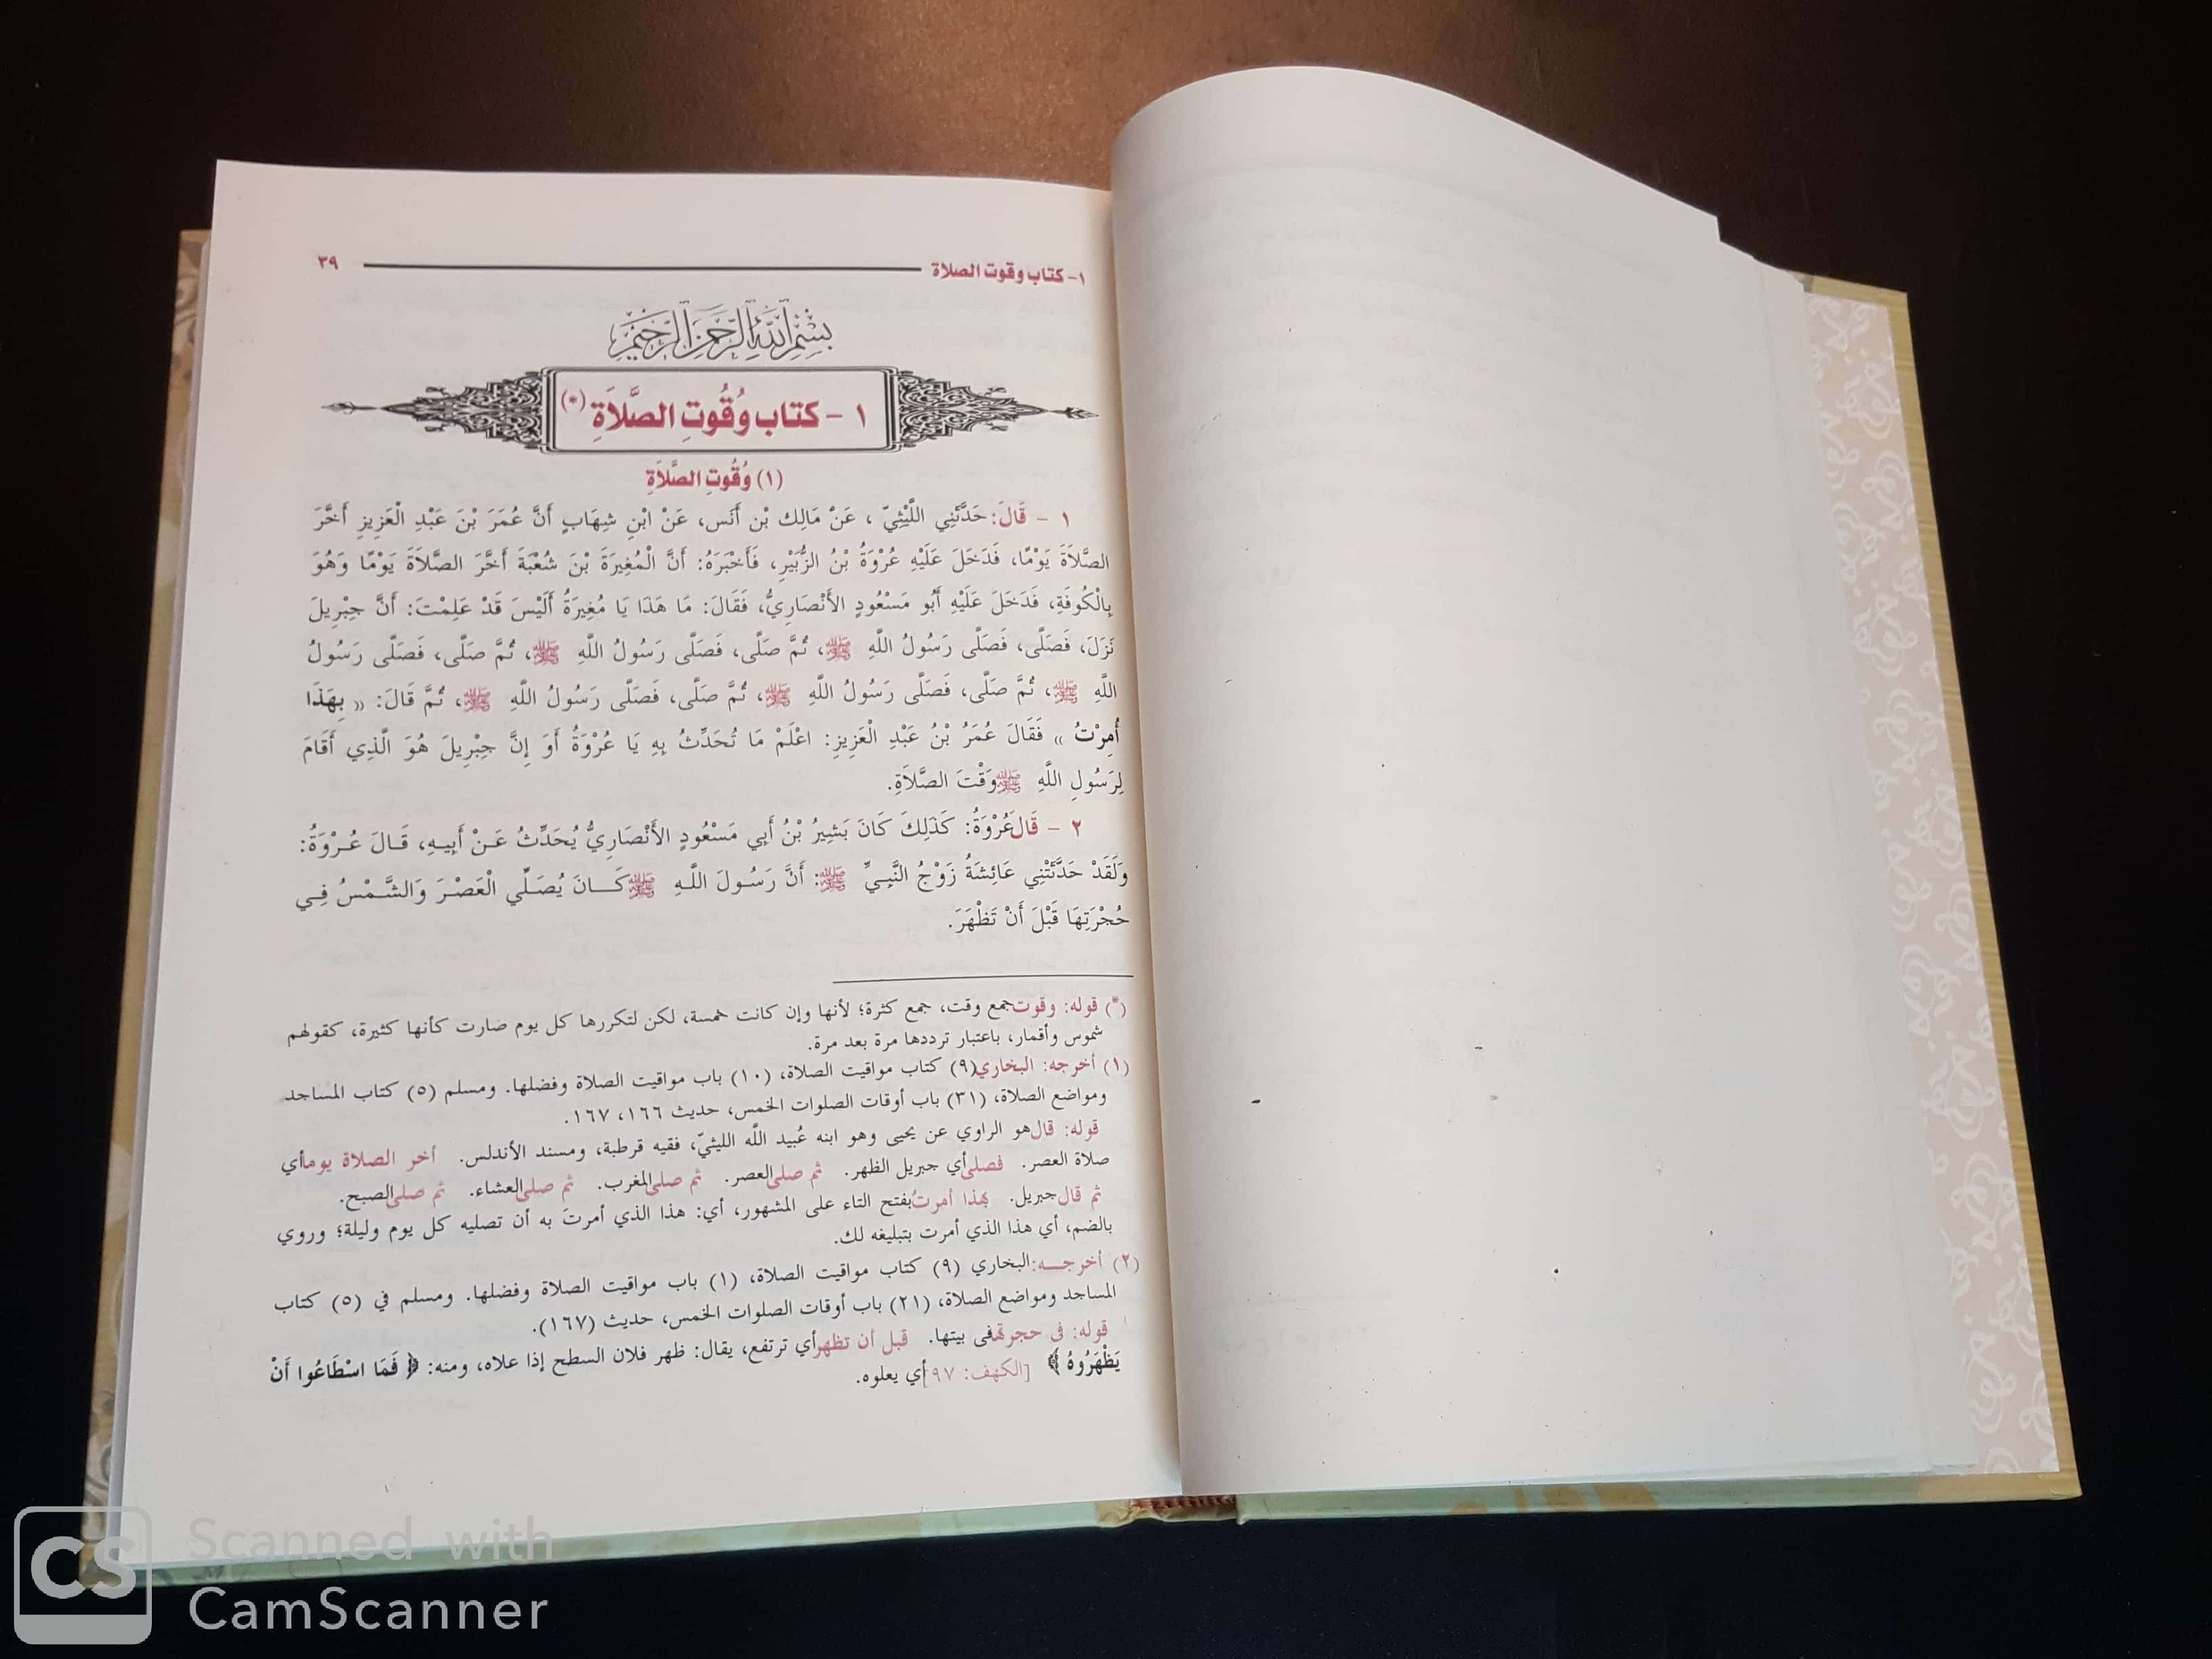 ١- كتاب وقوت الصلاة ٣٩
بِسْمِ اللَّهِ الرَّحْمَنِ الرَّحِيمِ
١ - كتاب وُقُوتِ الصَّلاَةِ (*)
(١) وُقُوتِ الصَّلاَةِ
١ - قَالَ: حَدَّثَنِي اللَّيْثِيّ ، عَنْ مَالِك بْن أَنَس، عَنْ ابْنِ شِهَابٍ أَنَّ عُمَرَ بْنَ عَبْدِ الْعَزِيزِ أَخَّرَ
الصَّلاَةَ يَوْمًا، فَدَخَلَ عَلَيْهِ عُرْوَةُ بْنُ الزُّبَيْرِ، فَأَخْبَرَهُ: أَنَّ الْمُغِيرَةَ بْنَ شُعْبَةَ أَخَّرَ الصَّلاَةَ يَوْمًا وَهُوَ
بِالْكُوفَةِ، فَدَخَلَ عَلَيْهِ أَبُو مَسْعُودٍ الأَنْصَارِيُّ، فَقَالَ: مَا هَذَا يَا مُغِيرَةُ أَلَيْسَ قَدْ عَلِمْتَ: أَنَّ جِبْرِيلَ
نَزَلَ، فَصَلَّى، فَصَلَّى رَسُولُ اللَّهِ ﷺ، ثُمَّ صَلَّى، فَصَلَّى رَسُولُ اللَّهِ ﷺ، ثُمَّ صَلَّى، فَصَلَّى رَسُولُ
اللَّهِ ﷺ، ثُمَّ صَلَّى، فَصَلَّى رَسُولُ اللَّهِ ﷺ، ثُمَّ صَلَّى، فَصَلَّى رَسُولُ اللَّهِ ﷺ، ثُمَّ قَالَ: « بِهَذَا
أُمِرْتُ » فَقَالَ عُمَرُ بْنُ عَبْدِ الْعَزِيزِ: اعْلَمْ مَا تُحَدِّثُ بِهِ يَا عُرْوَةُ أَوَ إِنَّ جِبْرِيلَ هُوَ الَّذِي أَقَامَ
لِرَسُولِ اللَّهِ ﷺ وَقْتَ الصَّلاَةِ.
٢ - قَالَ عُرْوَةُ: كَذَلِكَ كَانَ بَشِيرُ بْنُ أَبِي مَسْعُودٍ الأَنْصَارِيُّ يُحَدِّثُ عَنْ أَبِيهِ، قَالَ عُرْوَةُ:
وَلَقَدْ حَدَّثَتْنِي عَائِشَةُ زَوْجُ النَّبِيِّ ﷺ: أَنَّ رَسُولَ اللَّهِ ﷺ كَانَ يُصَلِّي الْعَصْرَ وَالشَّمْسُ فِي
حُجْرَتِهَا قَبْلَ أَنْ تَظْهَرَ.
(*) قوله: وقوت جمع وقت، جمع كثرة؛ لأنها وإن كانت خمسة، لكن لتكررها كل يوم صارت كأنها كثيرة، كقولهم
شموس وأقمار، باعتبار ترددها مرة بعد مرة.
(١) أخرجه: البخاري (٩) كتاب مواقيت الصلاة، (١٠) باب مواقيت الصلاة وفضلها. ومسلم (٥) كتاب المساجد
ومواضع الصلاة، (٣١) باب أوقات الصلوات الخمس، حديث ١٦٦، ١٦٧.
قوله: قال هو الراوي عن يحيى وهو ابنه عُبيد اللَّه الليثيّ، فقيه قرطبة، ومسند الأندلس. أخر الصلاة يوما أي
صلاة العصر. فصلى أي جبريل الظهر. ثم صلى العصر. ثم صلى المغرب. ثم صلى العشاء. ثم صلى الصبح.
ثم قال جبريل. بهذا أمرت بفتح التاء على المشهور، أي: هذا الذي أمرتَ به أن تصليه كل يوم وليلة؛ وروي
بالضم، أي هذا الذي أمرت بتبليغه لك.
(٢) أخرجه: البخاري (٩) كتاب مواقيت الصلاة، (١) باب مواقيت الصلاة وفضلها. ومسلم في (٥) كتاب
المساجد ومواضع الصلاة، (٢١) باب أوقات الصلوات الخمس، حديث (١٦٧).
قوله: في حجرتها في بيتها. قبل أن تظهر أي ترتفع، يقال: ظهر فلان السطح إذا علاه، ومنه: ﴿ فَمَا اسْطَاعُوا أَنْ
يَظْهَرُوهُ ﴾ [الكهف: ٩٧] أي يعلوه.
CS
Scanned with
CamScanner